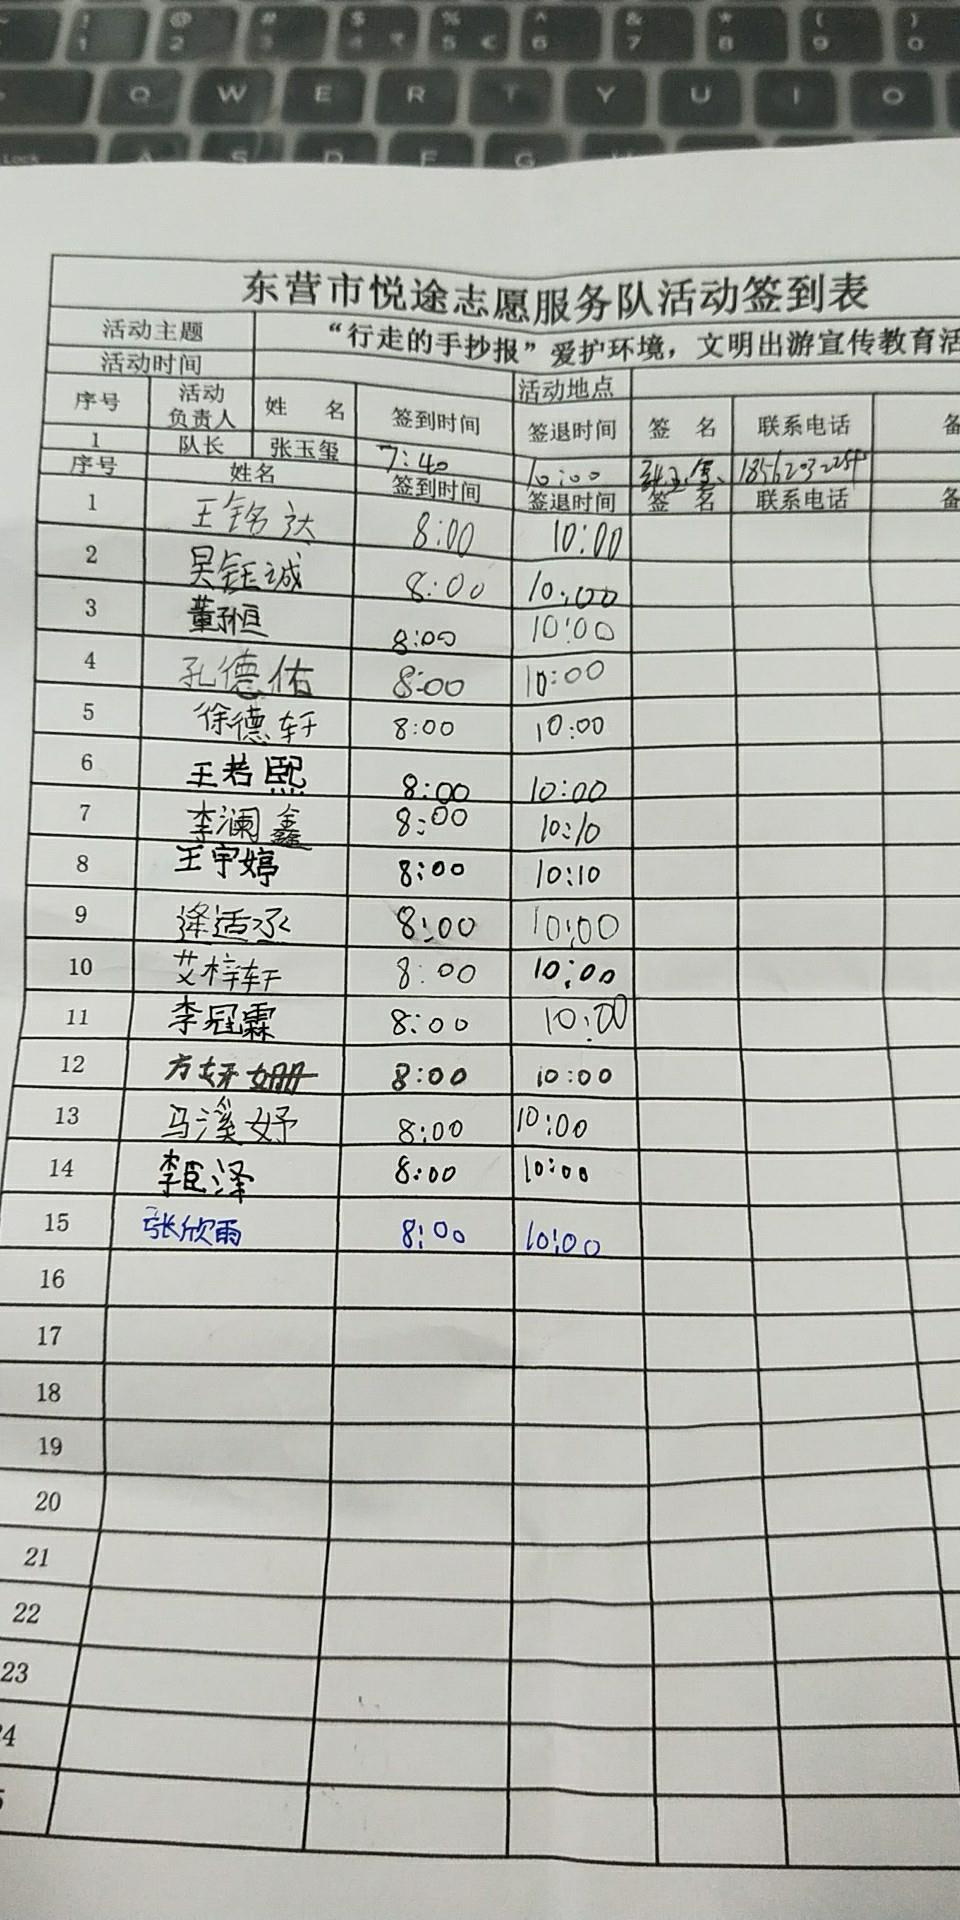 ! 1 @ 2 # 3 $ 4 ₹ % 5 € ^ 6 & 7 * 8 ( 9 ) 0
Q W E R T Y U I O
Lock A S D F G
东营市悦途志愿服务队活动签到表
活动主题 “行走的手抄报”爱护环境，文明出游宣传教育活
活动时间 活动地点
序号 活动负责人 姓 名 签到时间 签退时间 签 名 联系电话 备
1 队长 张玉玺 7:40 10:00
序号 姓名 签到时间 签退时间 签 名 联系电话 备
1 王铭达 8:00 10:00
2 吴钰诚 8:00 10:00
3 董孙恒 8:00 10:00
4 孔德佑 8:00 10:00
5 徐德轩 8:00 10:00
6 王若熙 8:00 10:00
7 李澜鑫 8:00 10:10
8 王宇婷 8:00 10:10
9 逄适丞 8:00 10:00
10 艾梓轩 8:00 10:00
11 李冠霖 8:00 10:00
12 方妍姗 8:00 10:00
13 马溪妤 8:00 10:00
14 李臣泽 8:00 10:00
15 张欣雨 8:00 10:00
16
17
18
19
20
21
22
23
4
5